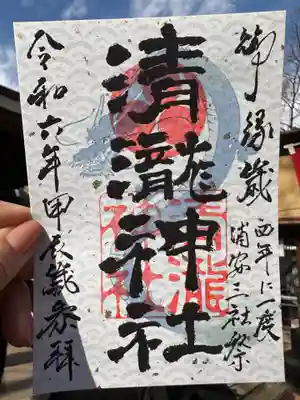 御縁歳
酉年に一度
浦安三社祭
清瀧神社
清瀧神社
令和六年甲辰歳参拝